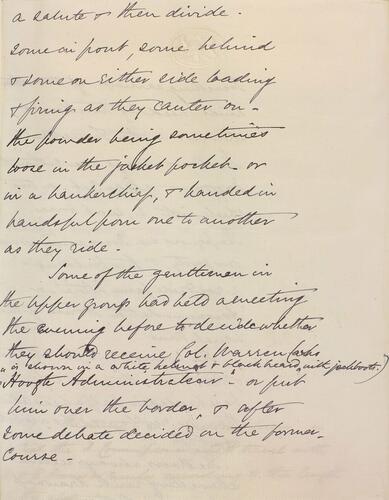 a salute & then divide.
Some in front, some behind
& some on either side loading
& firing as they canter on –
the powder being sometimes
loose in the jacket pocket – or
in a hankerchief, & handed in
handsful from one to another
as they ride –
Some of the gentlemen in
the upper group had held a meeting
the evening before to decide whether
they should receive Col. Warren (who
is shown in a white helmet & black beard, with jackboots)
"Hoogte Administrateur" – or put
him over the border, & after
some debate decided on the former
course –